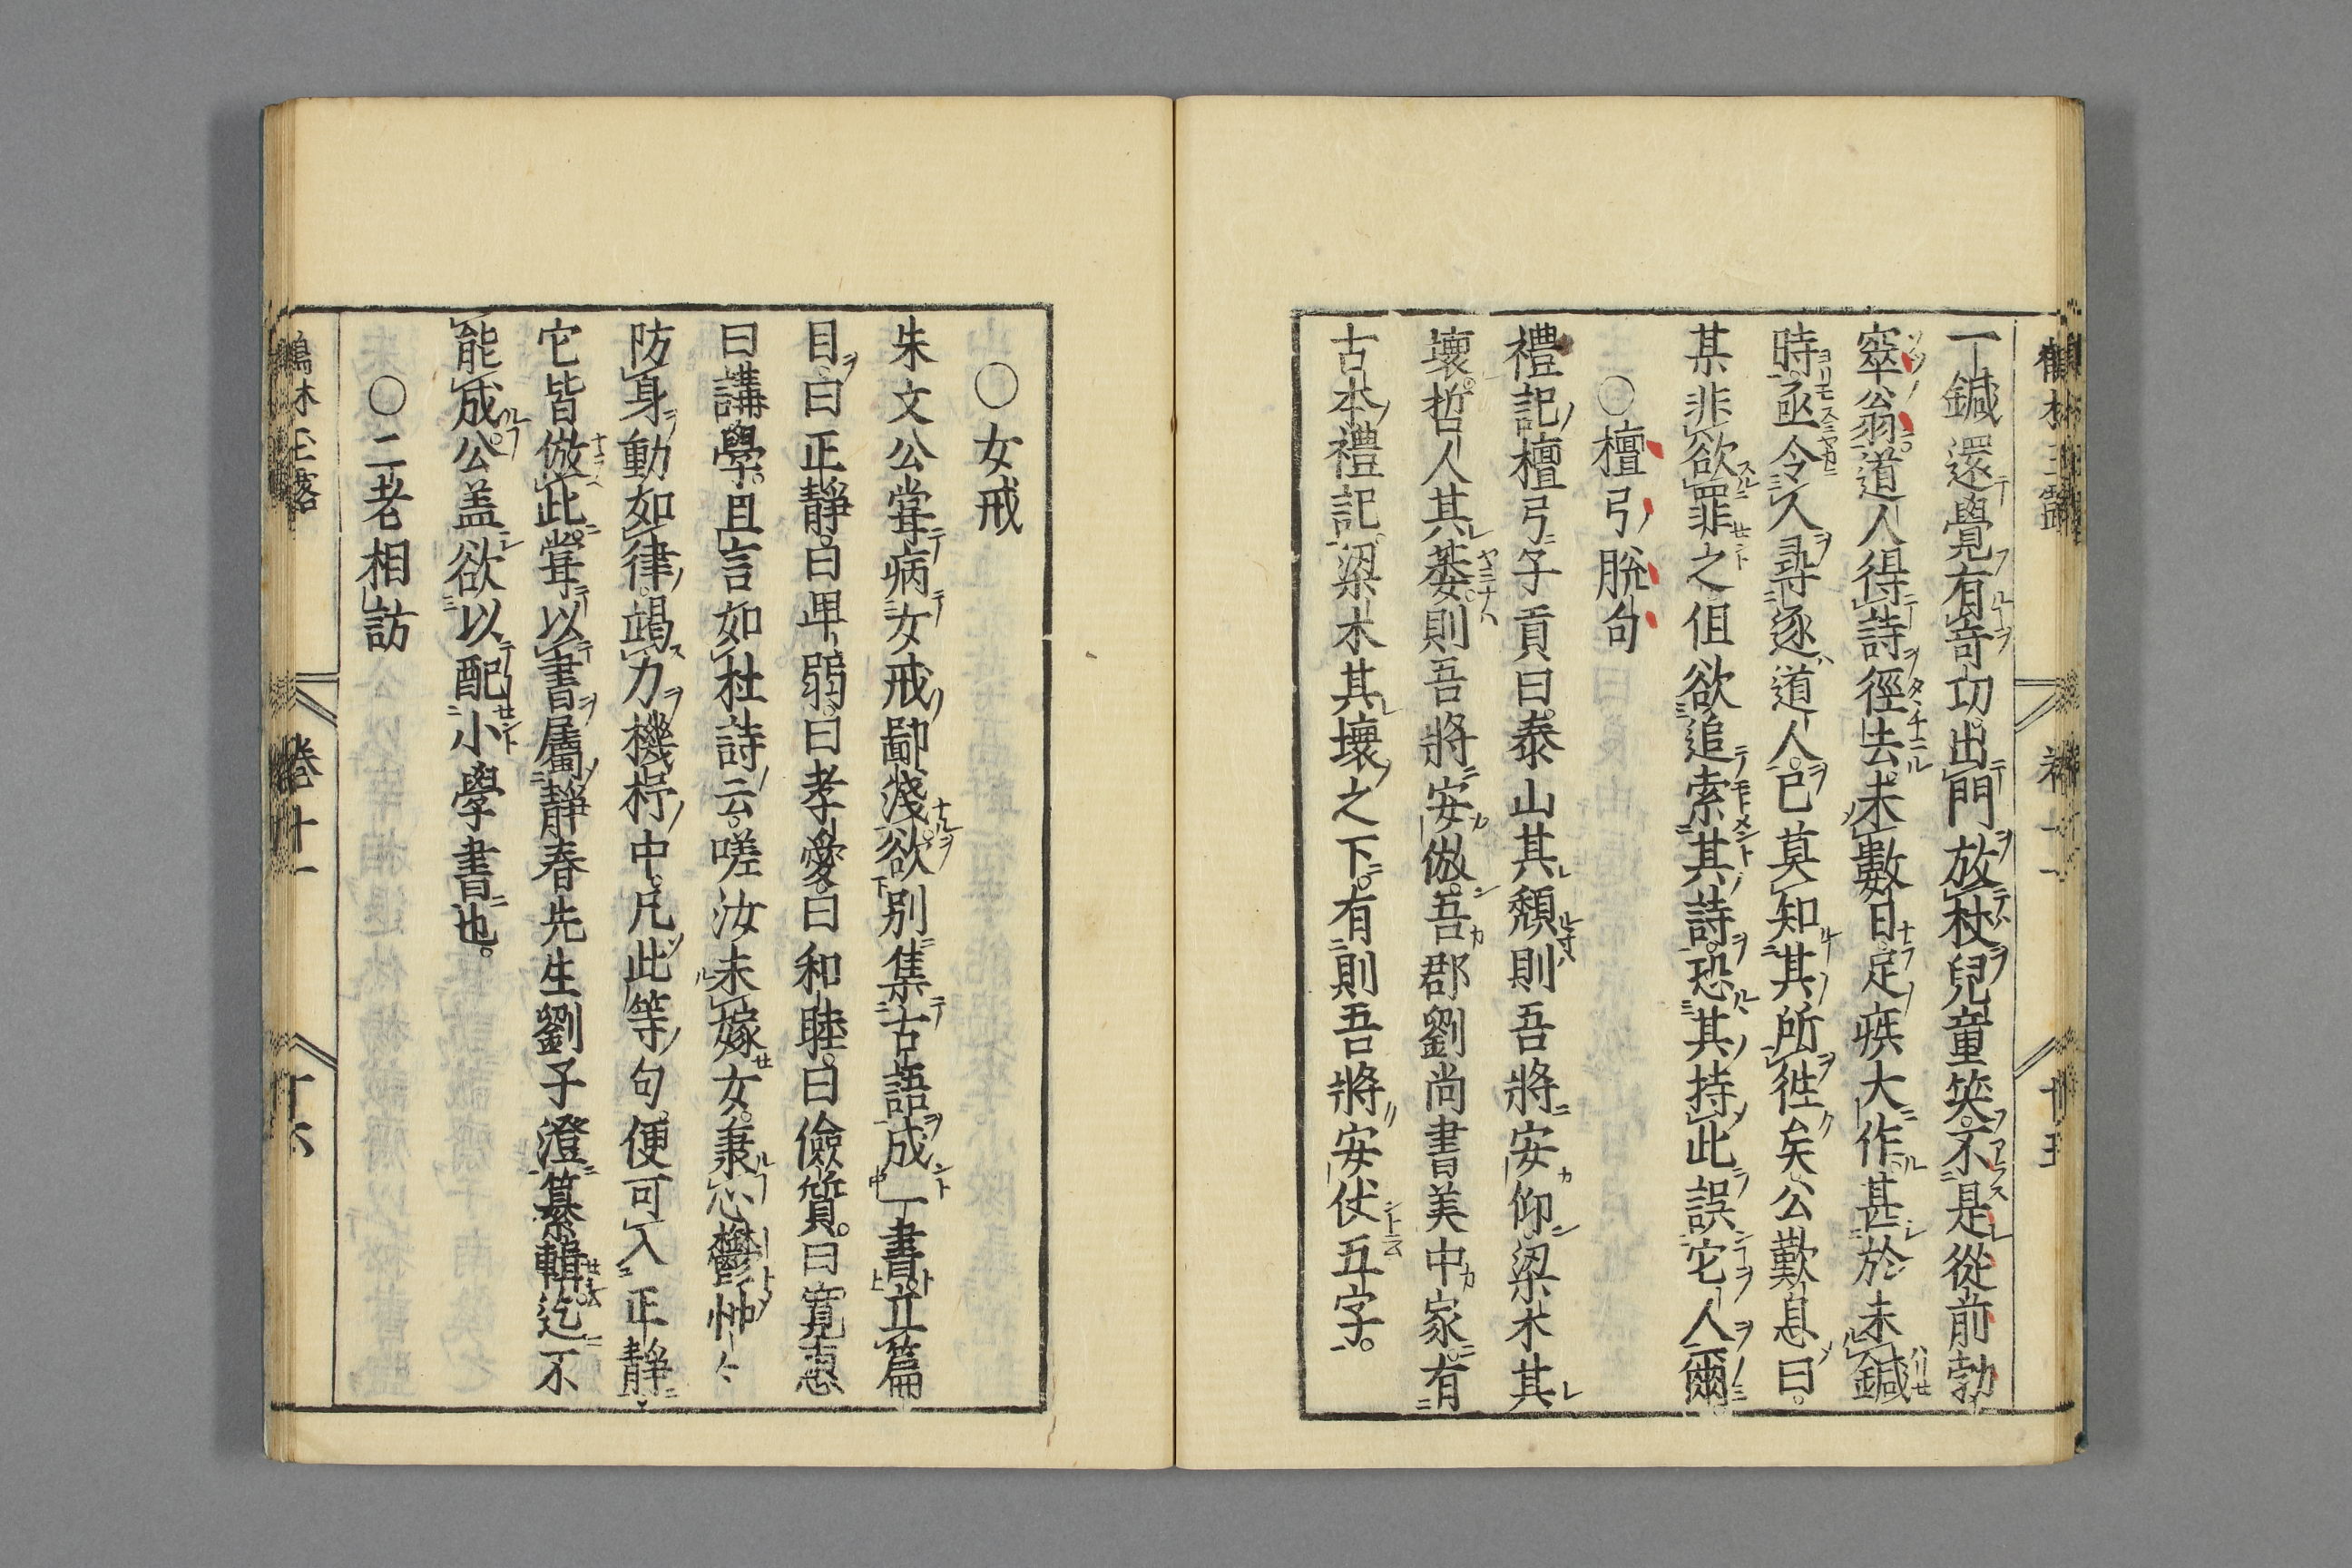 一鍼還覺有奇功出門放杖兒童笑不是從前勃
窣翁道人得詩徑去未數日足疾大作甚於未鍼
時亟令人尋逐道人已莫知其所徃矣公歎息曰
某非欲罪之但欲追索其詩恐其持此誤它人爾
○檀弓脫句
禮記檀弓子貢曰泰山其頹則吾將安仰梁木其
壞哲人其萎則吾將安倣吾郡劉尚書美中家有
古本禮記梁木其壞之下有則吾將安伏五字
○女戒
朱文公甞病女戒鄙淺欲別集古語成一書立篇
目曰正靜曰卑弱曰孝愛曰和睦曰儉質曰寬惠
曰講學且言如杜詩云嗟汝未嫁女秉心鬱忡〻
防身動如律竭力機杼中凡此等句便可入正靜
它皆倣此甞以書屬靜春先生劉子澄纂輯迄不
能成公盖欲以配小學書也
○二老相訪
卷十一